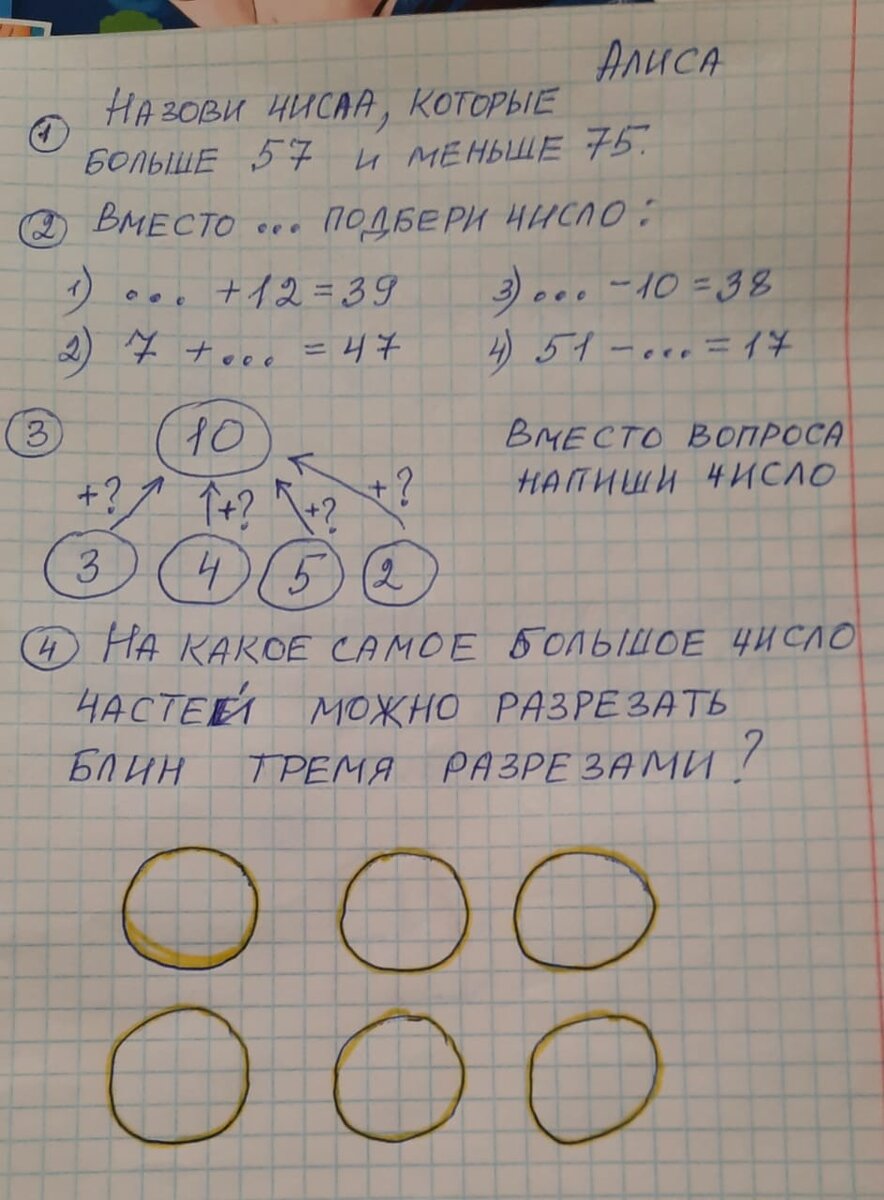 АЛИСА
① НАЗОВИ ЧИСЛА, КОТОРЫЕ
БОЛЬШЕ 57 И МЕНЬШЕ 75.
② ВМЕСТО ... ПОДБЕРИ ЧИСЛО:
1) ... +12=39 3) ... -10=38
2) 7 +... = 47 4) 51 -...=17
③ 10 ВМЕСТО ВОПРОСА
НАПИШИ ЧИСЛО
+? +? +? +?
3 4 5 2
④ НА КАКОЕ САМОЕ БОЛЬШОЕ ЧИСЛО
ЧАСТЕЙ МОЖНО РАЗРЕЗАТЬ
БЛИН ТРЕМЯ РАЗРЕЗАМИ?